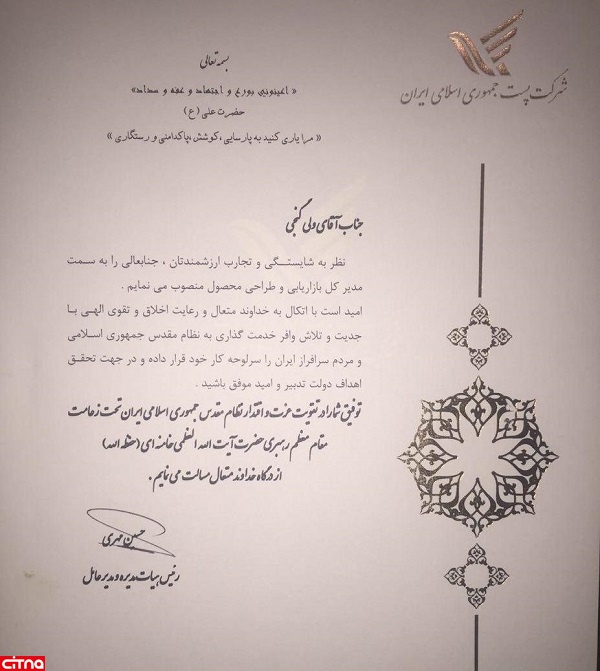 شرکت پست جمهوری اسلامی ایران
بسمه تعالی
« اعینونی بورع و اجتهاد و عفه و سداد»
حضرت علی (ع)
« مرا یاری کنید به پارسایی ،کوشش ،پاکدامنی و رستگاری »
جناب آقای ولی گنجی
نظر به شایستگی و تجارب ارزشمندتان ، جنابعالی را به سمت
مدیر کل بازاریابی و طراحی محصول منصوب می نمایم .
امید است با اتکال به خداوند متعال و رعایت اخلاق و تقوی الهی با
جدیت و تلاش وافر خدمت گذاری به نظام مقدس جمهوری اسلامی
و مردم سرافراز ایران را سرلوحه کار خود قرار داده و در جهت تحقق
اهداف دولت تدبیر و امید موفق باشید .
توفیق شما را در تقویت عزت و اقتدار نظام مقدس جمهوری اسلامی ایران تحت زعامت
مقام معظم رهبری حضرت آیت الله العظمی خامنه ای (حفظه الله)
از درگاه خداوند متعال مسالت می نمایم .
حسین مهری
رئیس هیات مدیره و مدیر عامل
CITNA